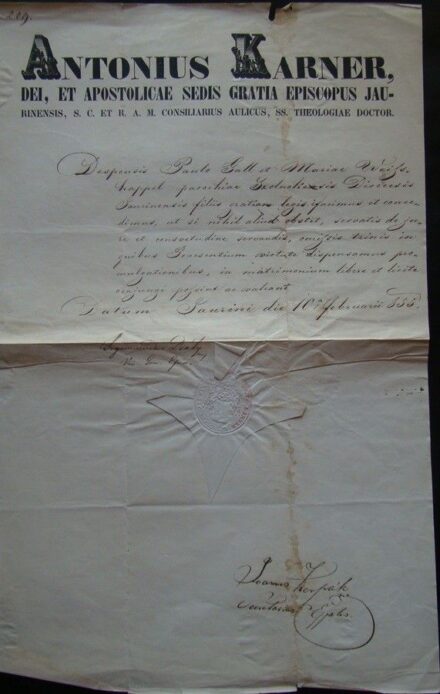 209.
ANTONIUS KARNER,
DEI, ET APOSTOLICAE SEDIS GRATIA EPISCOPUS JAU-
RINENSIS, S. C. ET R. A. M. CONSILIARIUS AULICUS, SS. THEOLOGIAE DOCTOR.
Desponsis Paulo Gall et Mariae
parochiae Dioecesis
Jaurinensis filiis gratiam facimus et conce
dimus, ut si nihil aliud obstet, servatis de ju-
re et consvetudine servandis, omissis trinis in
quibus Praesentium virtute dispensamus pro
mulgationibus, in matrimonium libere et licite
conjungi possint ac valeant.
Datum Jaurini die 10ª Februarii 855.
Joannes
Secretarius Eppalis